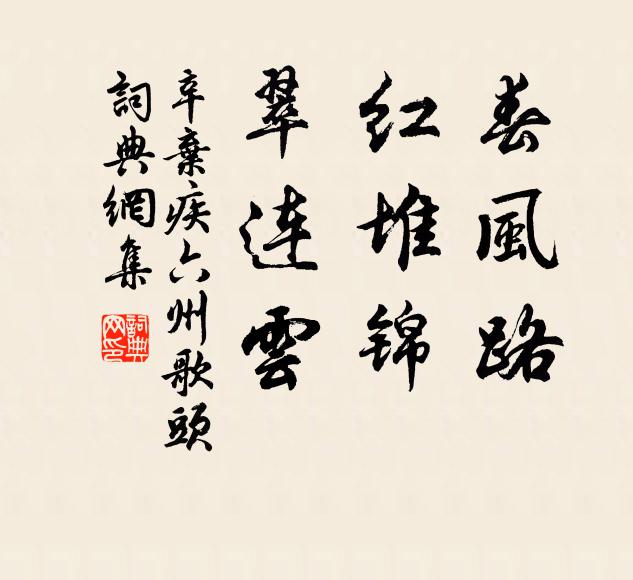 春風路
红堆锦
翠連雲
辛棄疾六州歌頭
詞典網集
詞典
网印